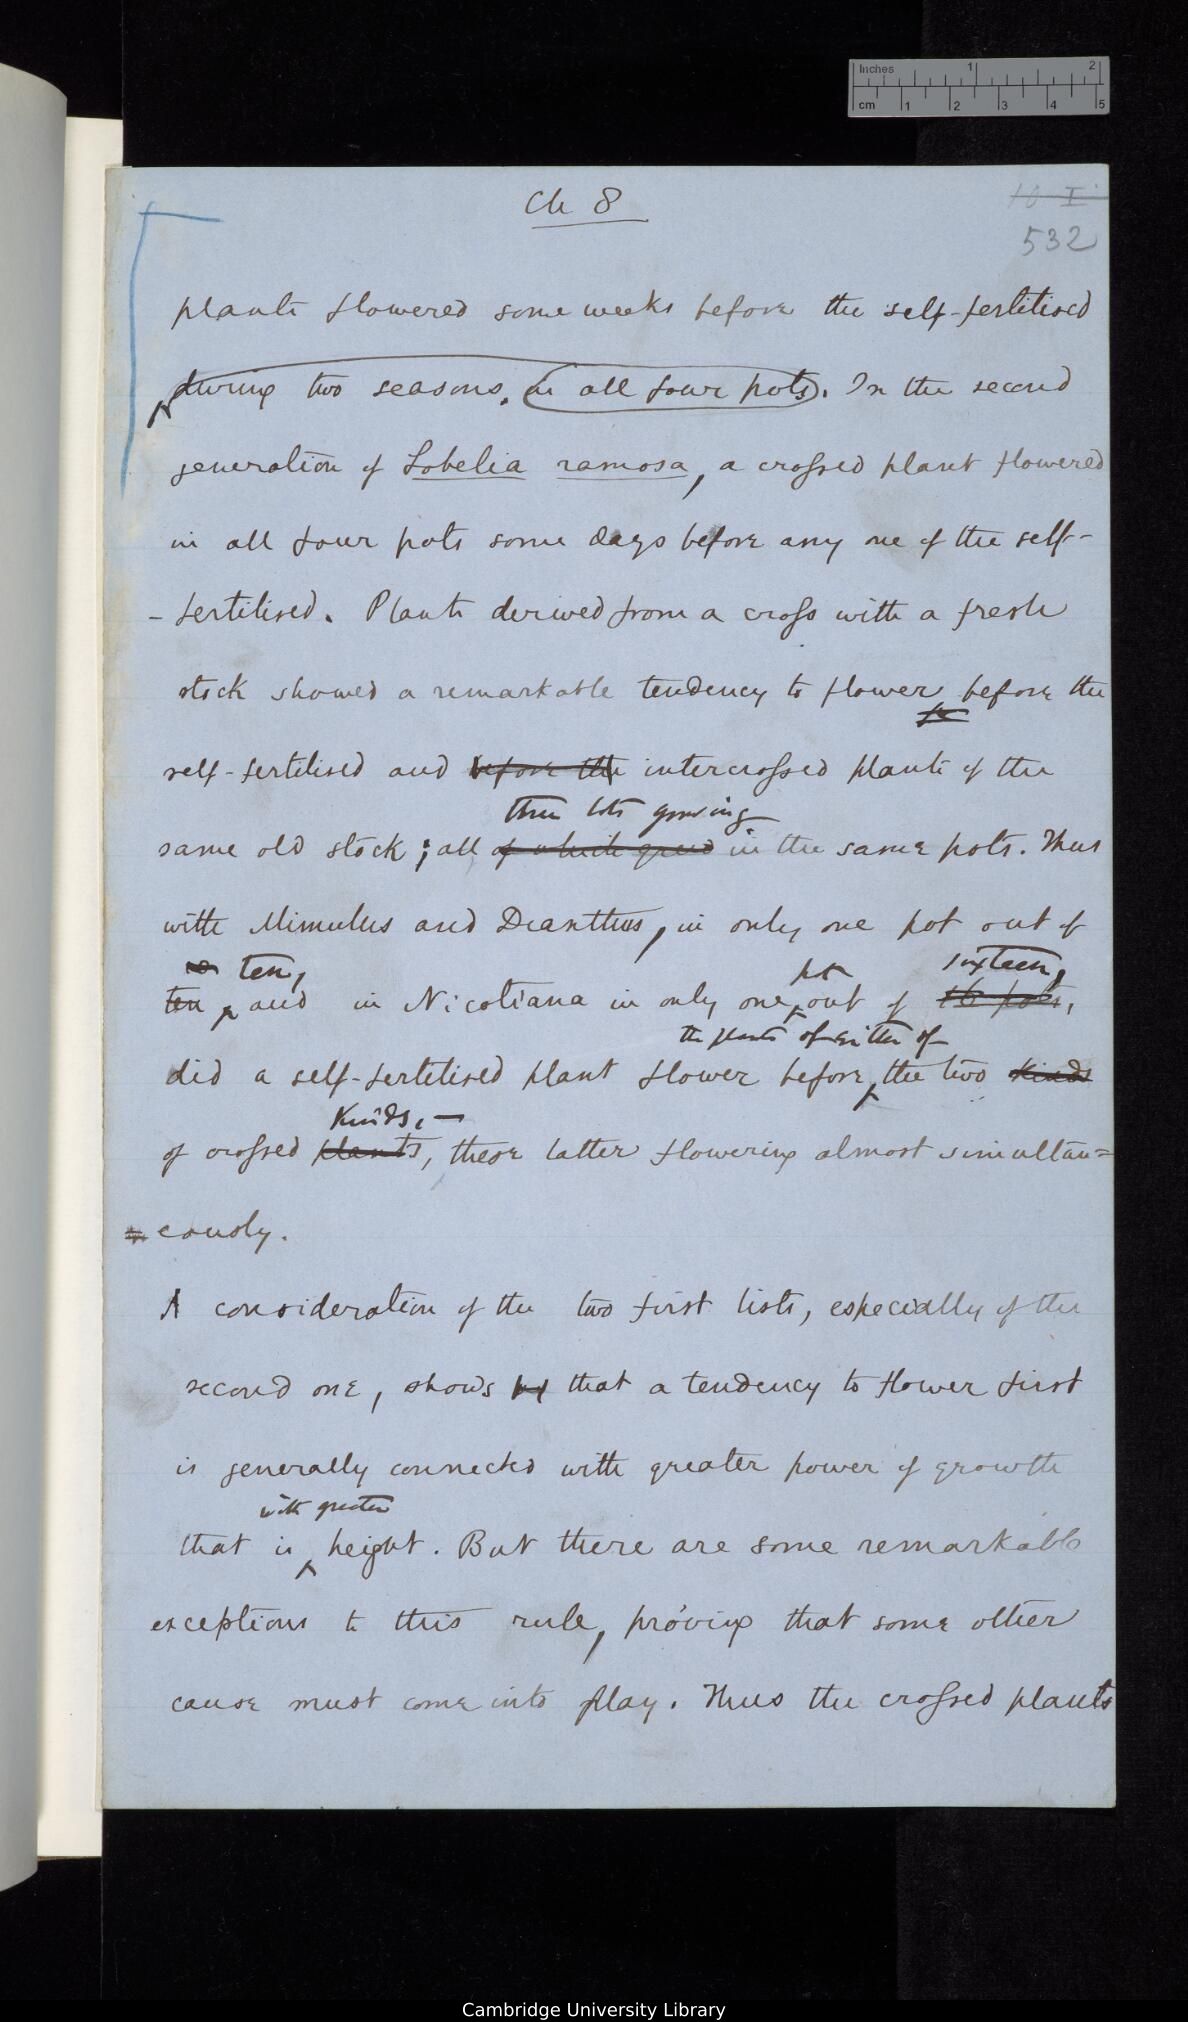 Inches 1 2
cm 1 2 3 4 5
Ch 8
10 I
532
plants flowered some weeks before the self-fertilised
during two seasons, in all four pots. In the second
generation of Lobelia ramosa, a crossed plant flowered
in all four pots some days before any one of the self-
-fertilised. Plants derived from a cross with a fresh
stock showed a remarkable tendency to flower before the
self-fertilised and before the intercrossed plants of the
three lots growing
same old stock; all of which grew in the same pots. Thus
with Mimulus and Dianthus, in only one pot out of
ten, pot sixteen,
ten, and in Nicotiana in only one out of 16 pots,
the plants of either of
did a self-fertilised plant flower before the two kinds
kinds,—
of crossed plants, these latter flowering almost simultan=
eously.
A consideration of the two first lists, especially of the
second one, shows that a tendency to flower first
is generally connected with greater power of growth
with greater
that is height. But there are some remarkable
exceptions to this rule, proving that some other
cause must come into play. Thus the crossed plants
Cambridge University Library